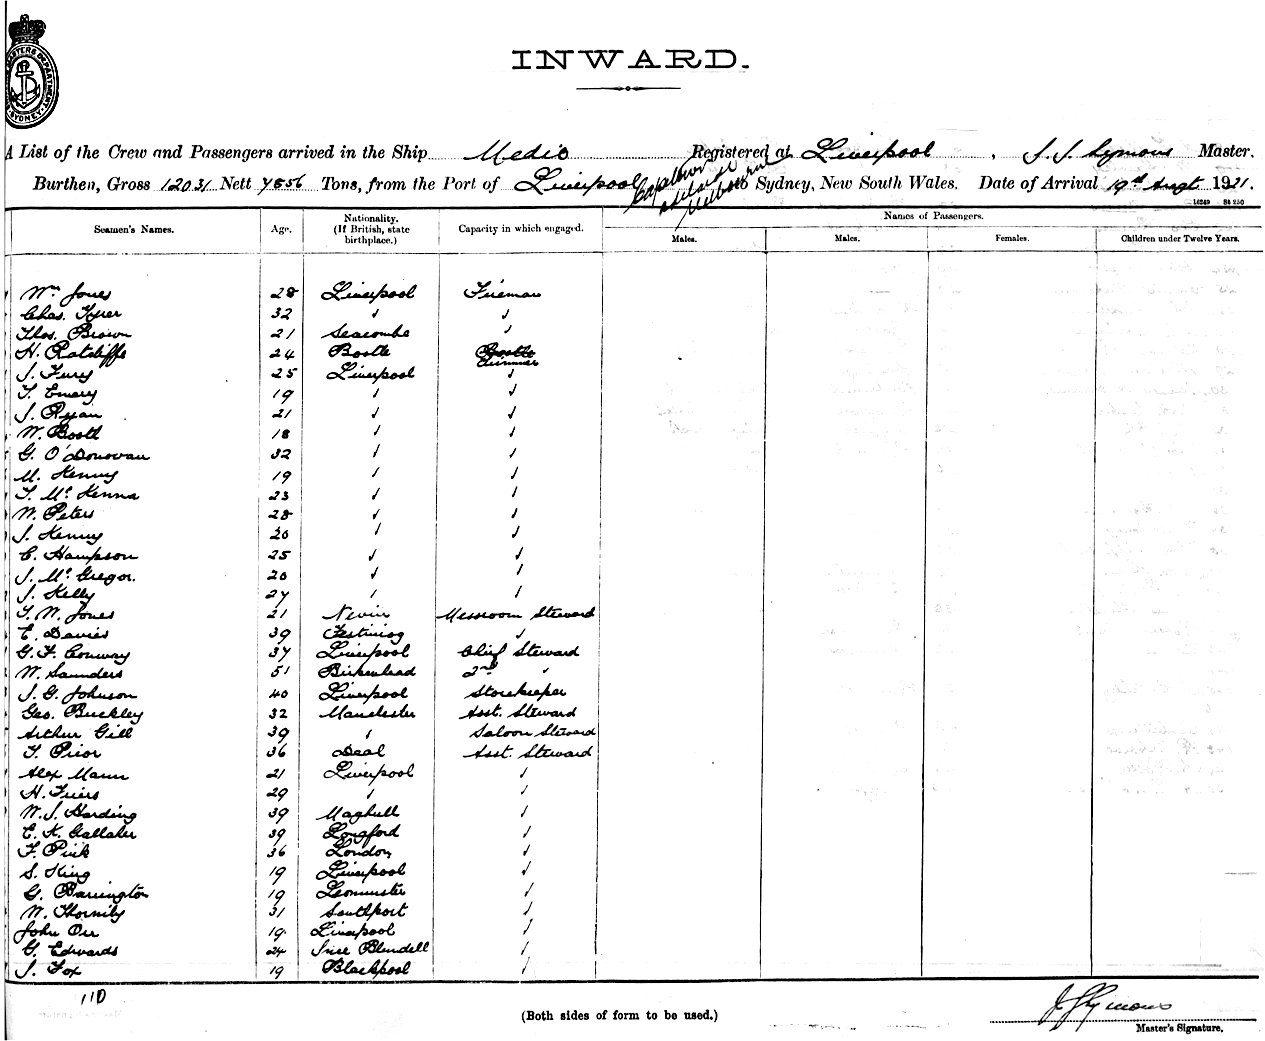 MASTERS DEPARTMENT
SYDNEY
INWARD.
A List of the Crew and Passengers arrived in the Ship Medic Registered at Liverpool, J. J. Symons Master.
Burthen, Gross 12031 Nett 7856 Tons, from the Port of Liverpool Capetown Adelaide Melbourne to Sydney, New South Wales. Date of Arrival 19th Augt 1921.
Seamen's Names. Age. Nationality. (If British, state birthplace.) Capacity in which engaged. Names of Passengers.
Males. Males. Females. Children under Twelve Years.
Wm. Jones 28 Liverpool Fireman
Chas. 32 " "
Thos. Brown 21 Seacombe "
H. Ratcliffe 24 Bootle Trimmer
J. Fury 25 Liverpool "
T. Emery 19 " "
J. Ryan 21 " "
W. Booth 18 " "
G. O'Donovan 32 " "
M. Kenny 19 " "
T. McKenna 23 " "
W. Peters 28 " "
J. Kenny 20 " "
C. Hampson 25 " "
J. McGregor. 20 " "
J. Kelly 27 " "
T. W. Jones 21 Nevin Messroom Steward
E. Davies 39 Festiniog "
G. F. Conway 37 Liverpool Chief Steward
W. Saunders 51 Birkenhead 2nd "
J. G. Johnson 40 Liverpool Storekeeper
Geo. Buckley 32 Manchester Asst. Steward
Arthur Gill 39 " Saloon Steward
T. Prior 36 Deal Asst. Steward
Alex Mann 21 Liverpool "
H. Friers 29 " "
W. J. Harding 39 Maghull "
E. K. Gallaher 39 Longford "
F. Pink 36 London "
S. King 19 Liverpool "
G. Barrington 19 Leominster "
W. Thornily 31 Southport "
John Orr 19 Liverpool "
G. Edwards 24 Ince Blundell "
J. Fox 19 Blackpool "
110
(Both sides of form to be used.)
J J Symons
Master's Signature.